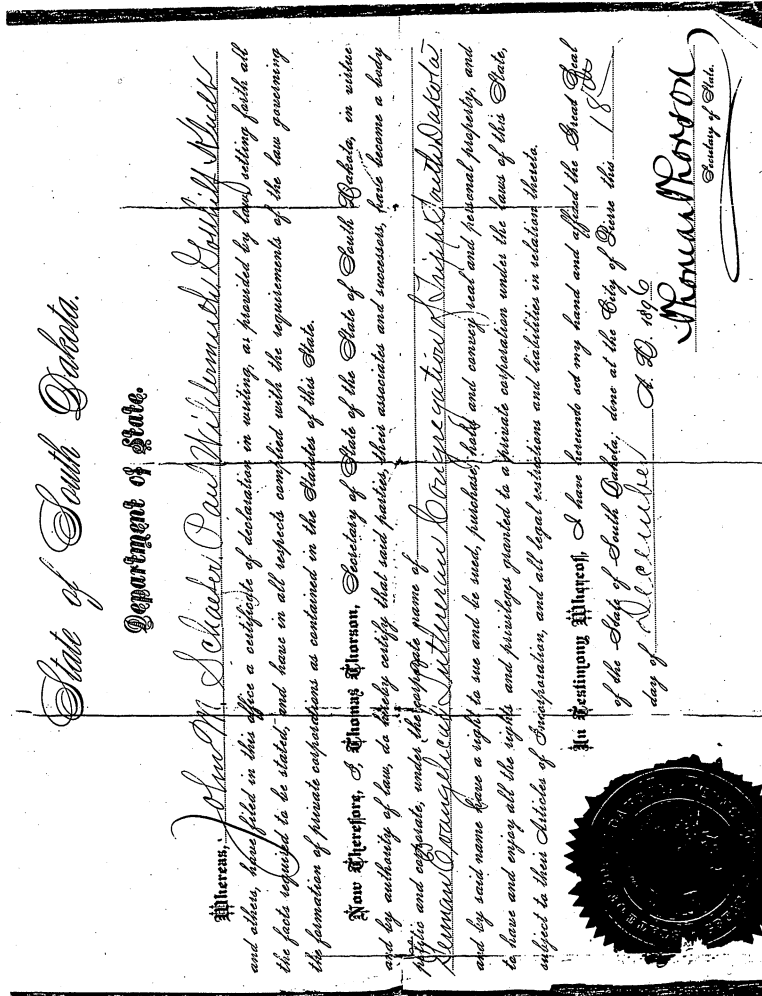 State of South Dakota.
Department of State.
Whereas, John M Schaefer Paul Willermudt Gottlieb
and others, have filed in this office a certificate of declaration in writing, as provided by law, setting forth all
the facts required to be stated, and have in all respects complied with the requirements of the law governing
the formation of private corporations as contained in the Statutes of this State.
Now Therefore, I, Thomas Thorson, Secretary of State of the State of South Dakota, in virtue
and by authority of law, do hereby certify that said parties, their associates and successors, have become a body
politic and corporate, under the corporate name of
German Evangelical Lutheran Congregation of Tripp South Dakota
and by said name have a right to sue and be sued, purchase, hold and convey real and personal property, and
to have and enjoy all the rights and privileges granted to a private corporation under the laws of this State,
subject to their Articles of Incorporation, and all legal restrictions and liabilities in relation thereto.
In Testimony Whereof, I have hereunto set my hand and affixed the Great Seal
of the State of South Dakota, done at the City of Pierre this 18th
day of December A.D. 1896
Thomas Thorson
Secretary of State.